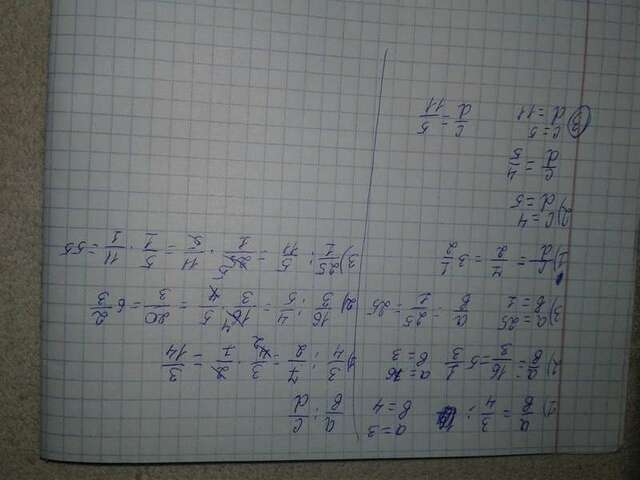 1) a/в = 3/4; a=3 в=4
2) a/в = 16/3 = 5 1/3 a=16 в=3
3) a=25 в=1 a/в = 25/1 = 25
1) c/d = 7/2 = 3 1/2
2) c=4 d=5
c/d = 4/5
3) c=5 d=11 c/d = 5/11
a/в : c/d
1) 3/4 : 7/2 = 3/4 · 2/7 = 3/14
2) 16/3 : 4/5 = 16/3 · 5/4 = 20/3 = 6 2/3
3) 25/1 : 5/11 = 25/1 · 11/5 = 5/1 · 11/1 = 55